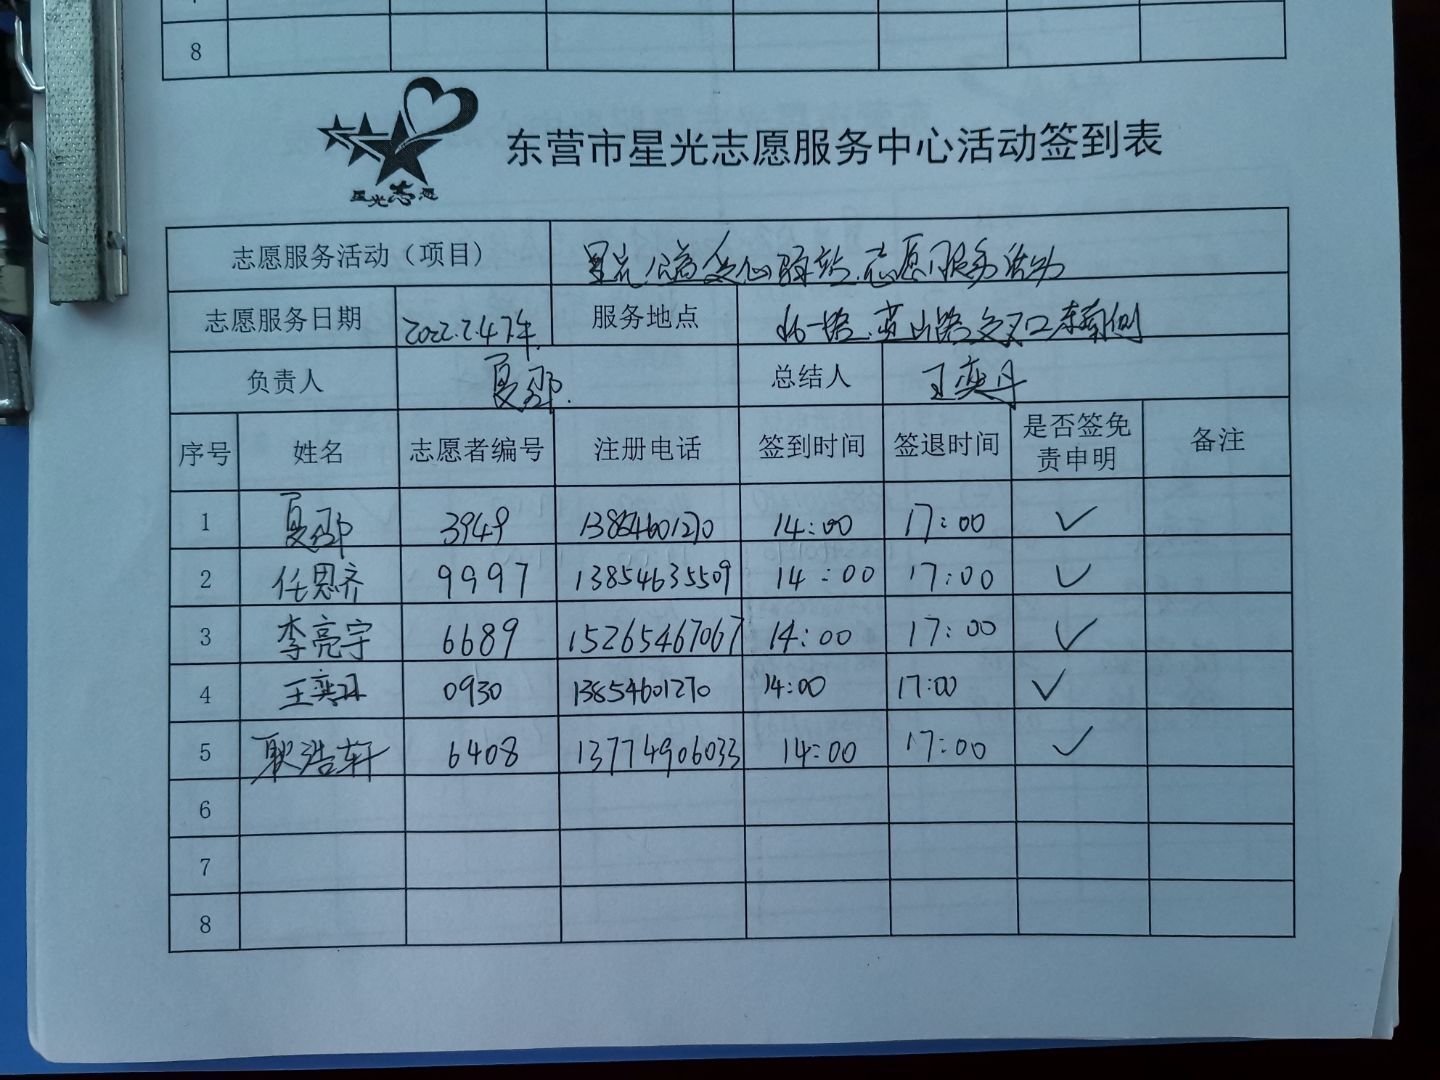 8
星光志愿
东营市星光志愿服务中心活动签到表
志愿服务活动（项目） 星光公益爱心驿站志愿服务活动
志愿服务日期 2022.2.4下午 服务地点 北一路 英山路交叉口东南侧
负责人 夏邵 总结人 王奕丹
序号 姓名 志愿者编号 注册电话 签到时间 签退时间 是否签免责申明 备注
1 夏邵 3949 13854601270 14:00 17:00 ✓
2 任思齐 9997 13854635509 14:00 17:00 ✓
3 李亮宇 6689 15265467067 14:00 17:00 ✓
4 王奕丹 0930 13854601270 14:00 17:00 ✓
5 耿浩轩 6408 13774906033 14:00 17:00 ✓
6
7
8